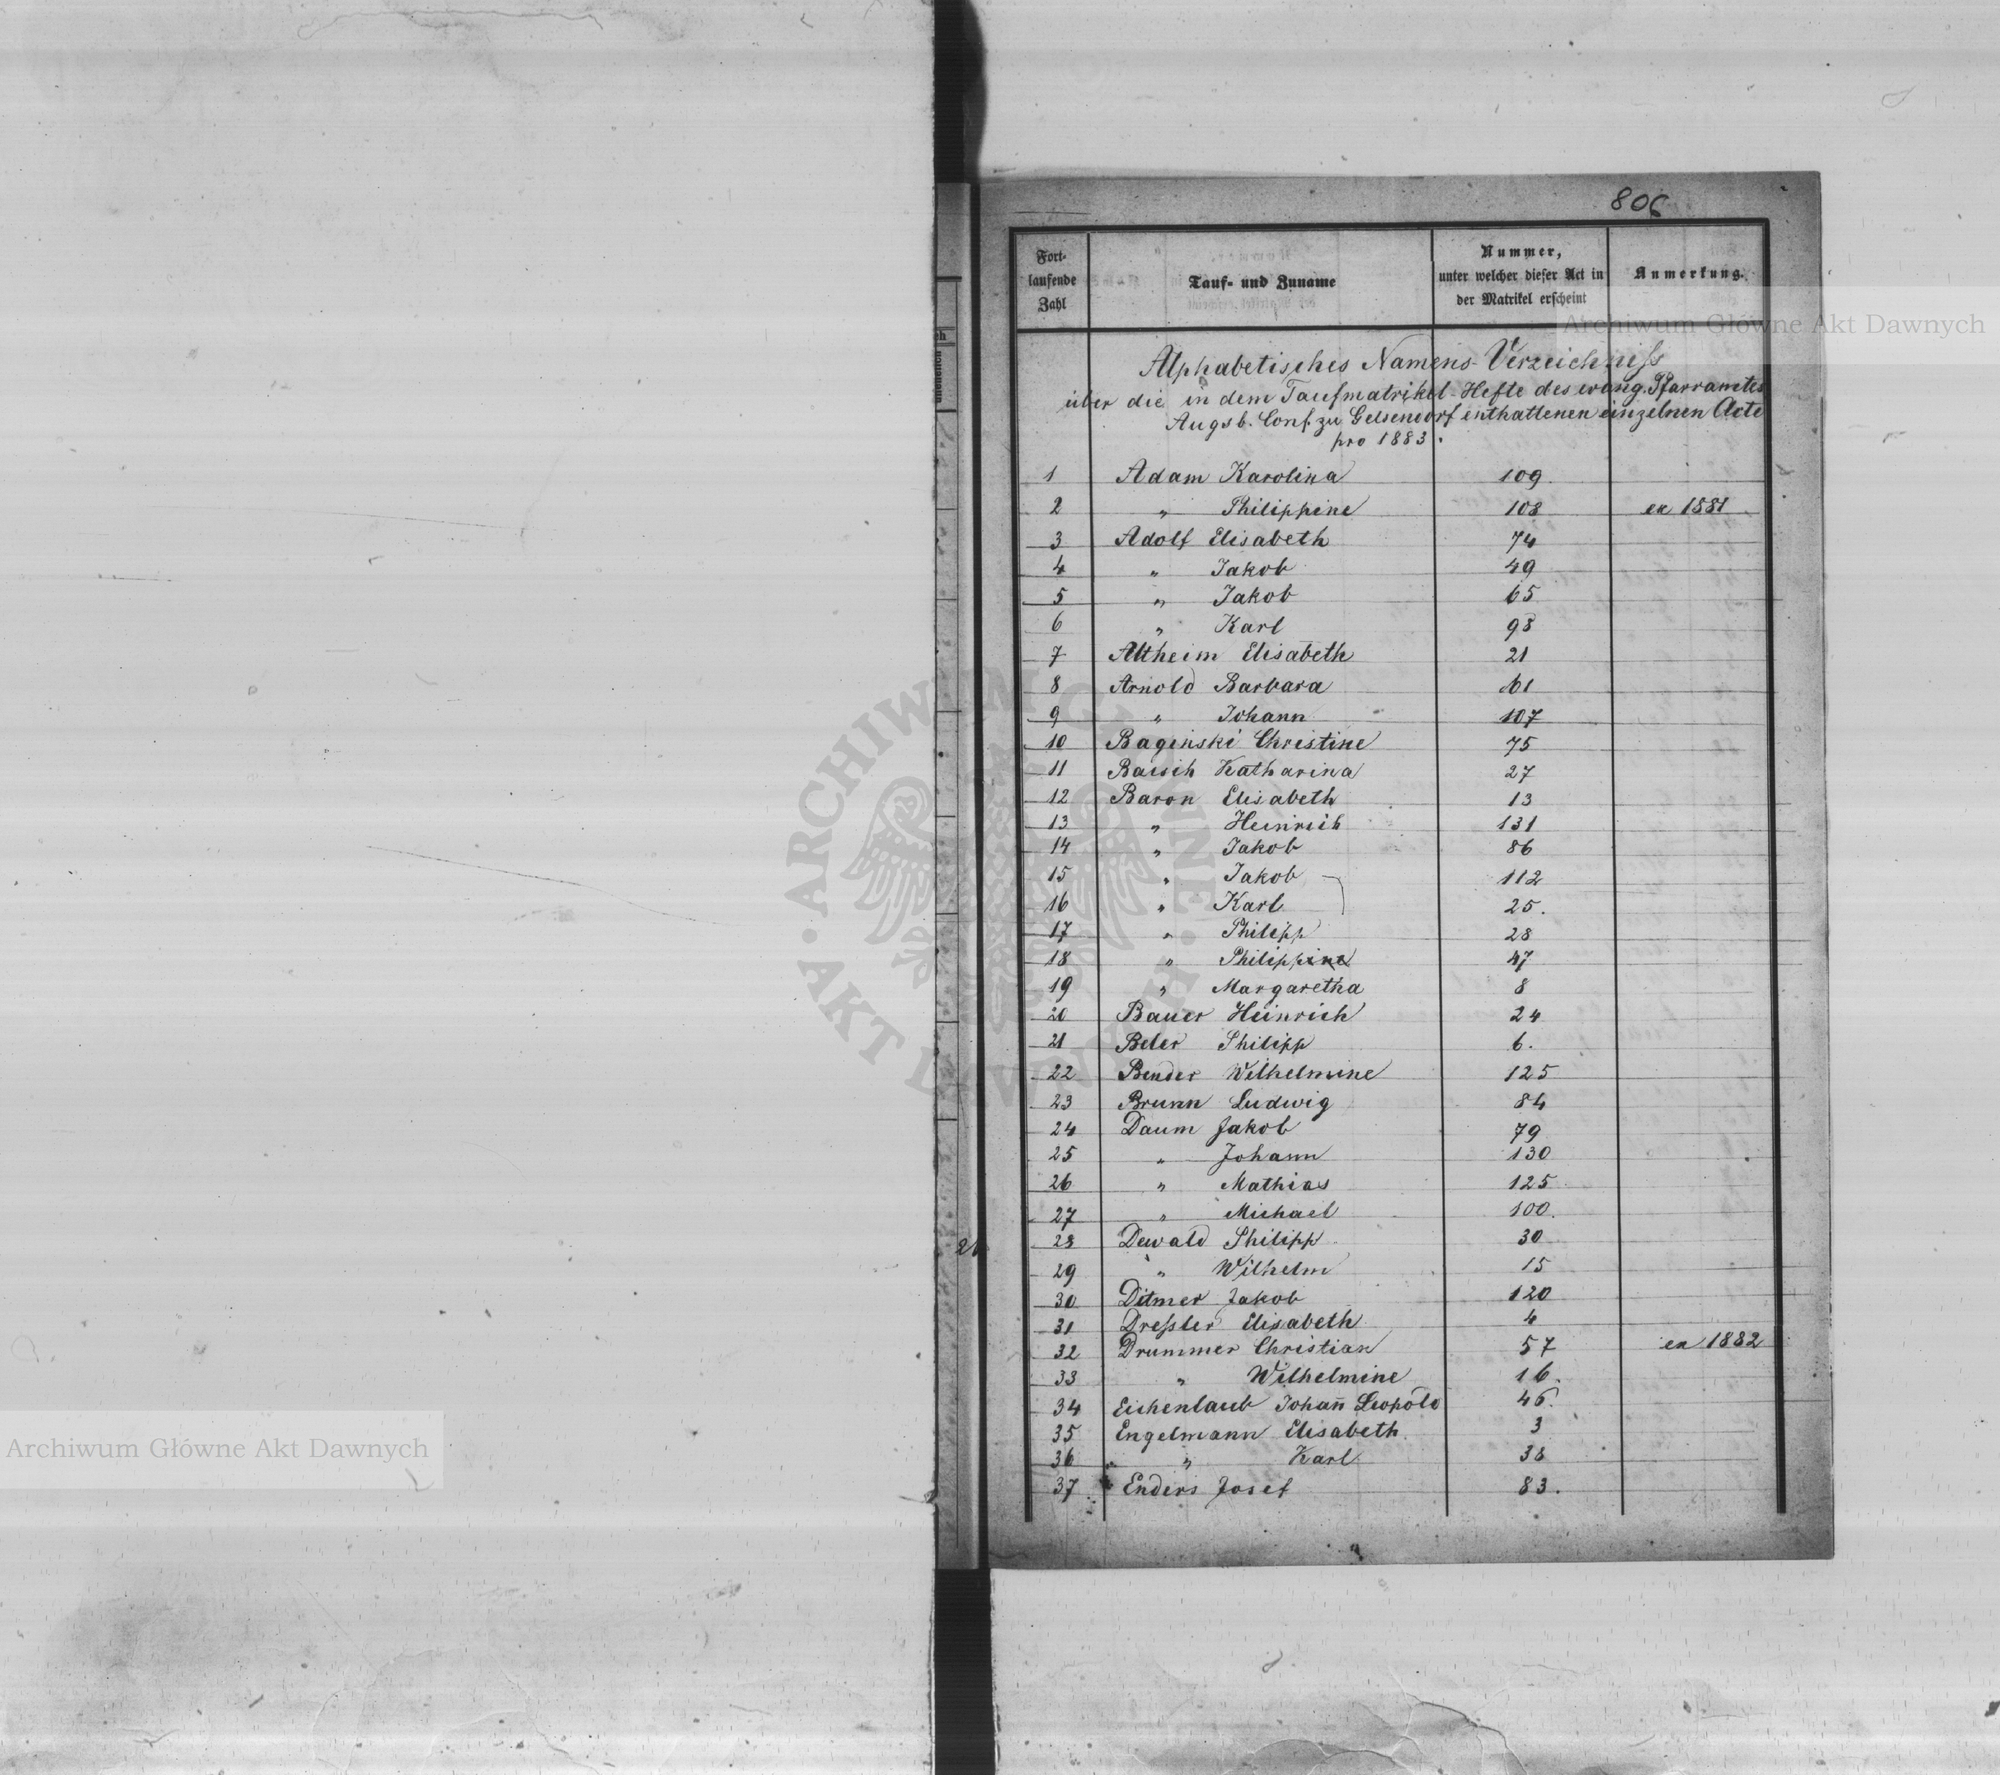 806
Fort-
laufende
Zahl
Tauf- und Zuname
Nummer,
unter welcher dieser Act in
der Matrikel erscheint
Anmerkung.
Alphabetisches Namens-Verzeichniss
über die in dem Taufmatrikel-Hefte des evang. Pfarramtes
Augsb. Conf. zu Gelsendorf enthaltenen einzelnen Acte
pro 1883.
1 Adam Karolina 109.
2 " Philippine 108 ex 1881
3 Adolf Elisabeth 74
4 " Jakob 49
5 " Jakob 65
6 " Karl 98
7 Altheim Elisabeth 21
8 Arnold Barbara 61
9 " Johann 107
10 Baginski Christine 75
11 Baisch Katharina 27
12 Baron Elisabeth 13
13 " Heinrich 131
14 " Jakob 86
15 " Jakob 112
16 " Karl 25.
17 " Philipp 28
18 " Philippine 47
19 " Margaretha 8
20 Bauer Heinrich 24
21 Beler Philipp 6.
22 Bender Wilhelmine 125
23 Brunn Ludwig 84
24 Daum Jakob 79
25 " Johann 130
26 " Mathias 125
27 " Michael 100.
28 Dewald Philipp 30
29 " Wilhelm 15
30 Ditmer Jakob 120
31 Dreßler Elisabeth 4
32 Drummer Christian 57 ex 1882
33 " Wilhelmine 16.
34 Eichenlaub Johan̄ Leopold 46.
35 Engelmann Elisabeth 3
36 " Karl 38
37 Enders Josef 83.
Archiwum Główne Akt Dawnych
Archiwum Główne Akt Dawnych
ARCHIWUM GŁÓWNE AKT DAWNYCH